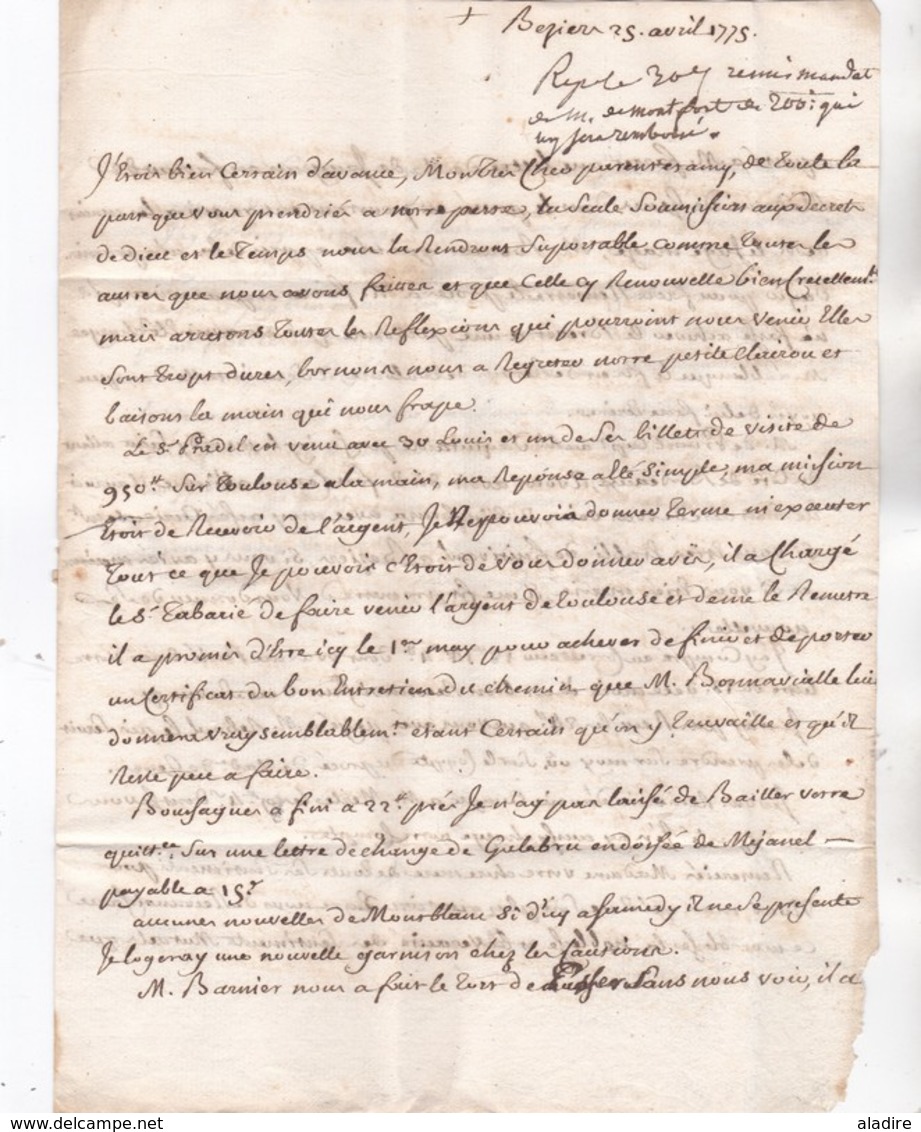 + Beziers 25. avril 1775.
Rep. le 30 remis mandat
de M. de montfort de 200 qui
sera remboursé.
J'Etois bien Certain d'avance, Mon tres Cher parent et amy, de toute la
part que vous prendriés a notre perte, la Seule Soumission aux decrets
de dieu et le Temps nous la Rendront Suportable comme toutes les
autres que nous avons faittes et que Celle cy Renouvelle bien Cruellem.t
mais arretons toutes les Reflexions qui pourroint nous venir Elles
Sont trop dures, bornons nous a Regreter notre petite Clairou et
baisons la main qui nous frape.
Le S.r Pradel est venu avec 30 Louis et un de Ses billets de visite de
950.tt Sur Toulouse a la main, ma Reponse a eté Simple, ma mission
Etoit de Recevoir de l'argent, Je ne pouvois donner terme ni executer
tout ce que Je pouvois c'Etoit de vous donner avis, il a Chargé
le S.r Tabarié de faire venir l'argent de Toulouse et de me le Remettre
il a promis d'Etre icy le 1.er may pour achever de finir et de porter
un Certificat du bon Entretien du chemin que M. Bonnavialle lui
donnera vraysemblablem.t etant Certain qu'on y travaille et qu'il
Reste peu a faire.
Boussagues a fini a 22.tt près Je n'ay pas laissé de Bailler votre
quitt.ce Sur une lettre de change de Galabru endossée de Mejanel —
payable a 15.j
aucunes nouvelles de Montblanc Si d'icy a Samedy il ne Se presente
Je logeray une nouvelle garnison chez les Cautions.
M. Barnier nous a fait le tort de passer Sans nous voir, il a
aladire